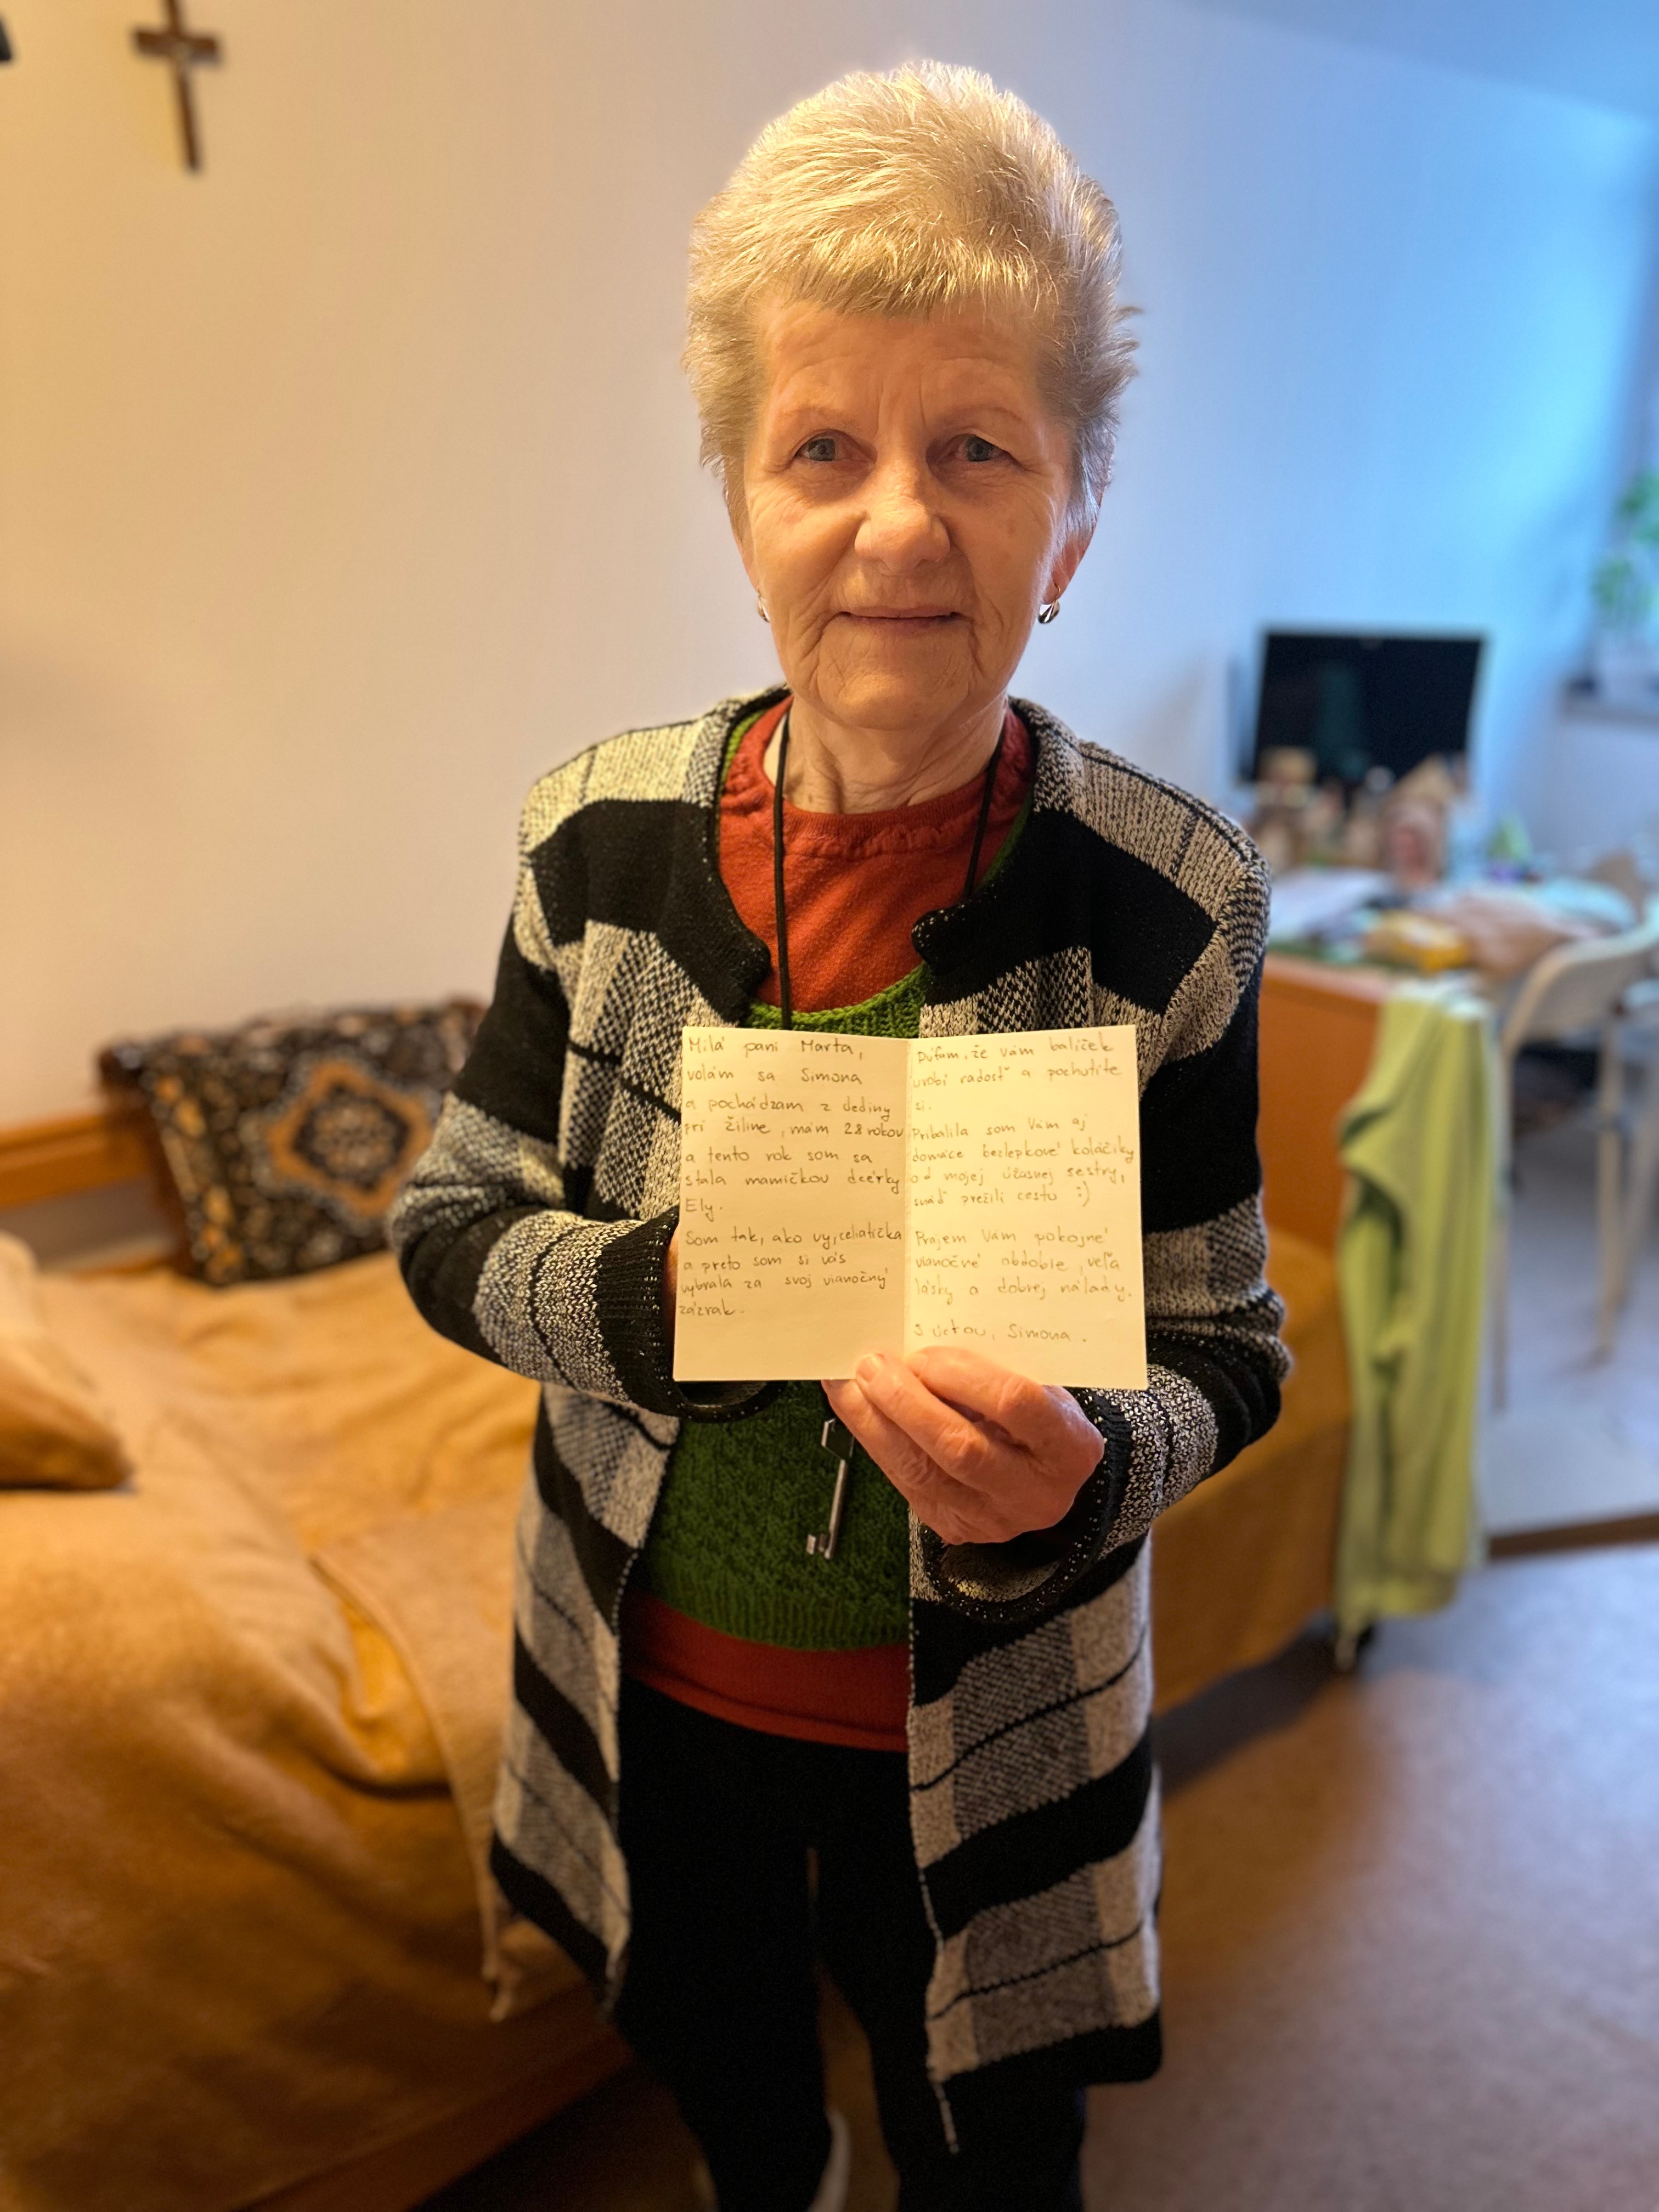 Milá pani Marta,
volám sa Simona
a pochádzam z dediny
pri Žiline, mám 28 rokov
a tento rok som sa
stala mamičkou dcérky
Ely.
Som tak, ako vy, celiatička
a preto som si vás
vybrala za svoj vianočný
zázrak.
Dúfam, že vám balíček
urobí radosť a pochutíte
si.
Pribalila som Vám aj
domáce bezlepkové koláčiky
od mojej úžasnej sestry,
snáď prežili cestu :)
Prajem Vám pokojné
vianočné obdobie, veľa
lásky a dobrej nálady.
S úctou, Simona.